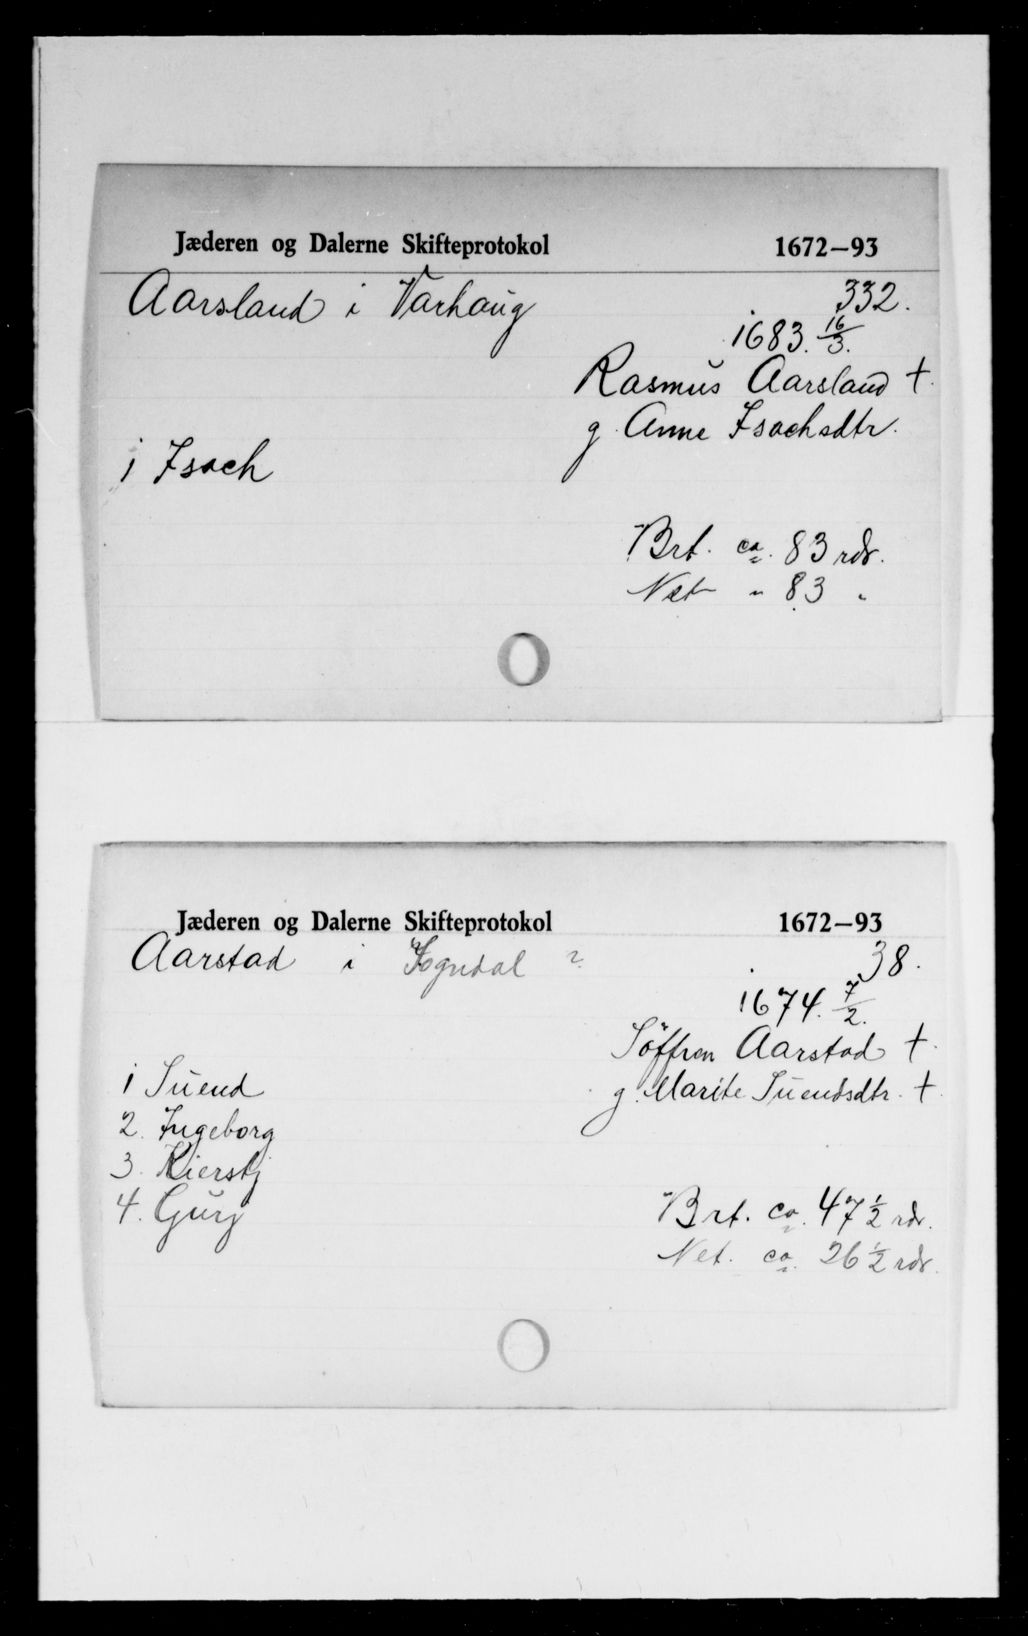 Jæderen og Dalerne Skifteprotokol 1672–93
Aarsland i Varhaug 332.
1683. 16/3.
Rasmus Aarsland †.
g. Anne Isachsdtr.
1 Isach
Brt. ca. 83 rdr.
Net " 83 "
Jæderen og Dalerne Skifteprotokol 1672–93
Aarstad i Hogndal ? 38.
1674. 7/2.
Søffren Aarstad †.
1 Suend g. Marite Suendsdtr. †.
2. Ingeborg
3. Kierstj
4. Gurj Brt. ca. 47 1/2 rdr.
Net. ca. 26 1/2 rdr.